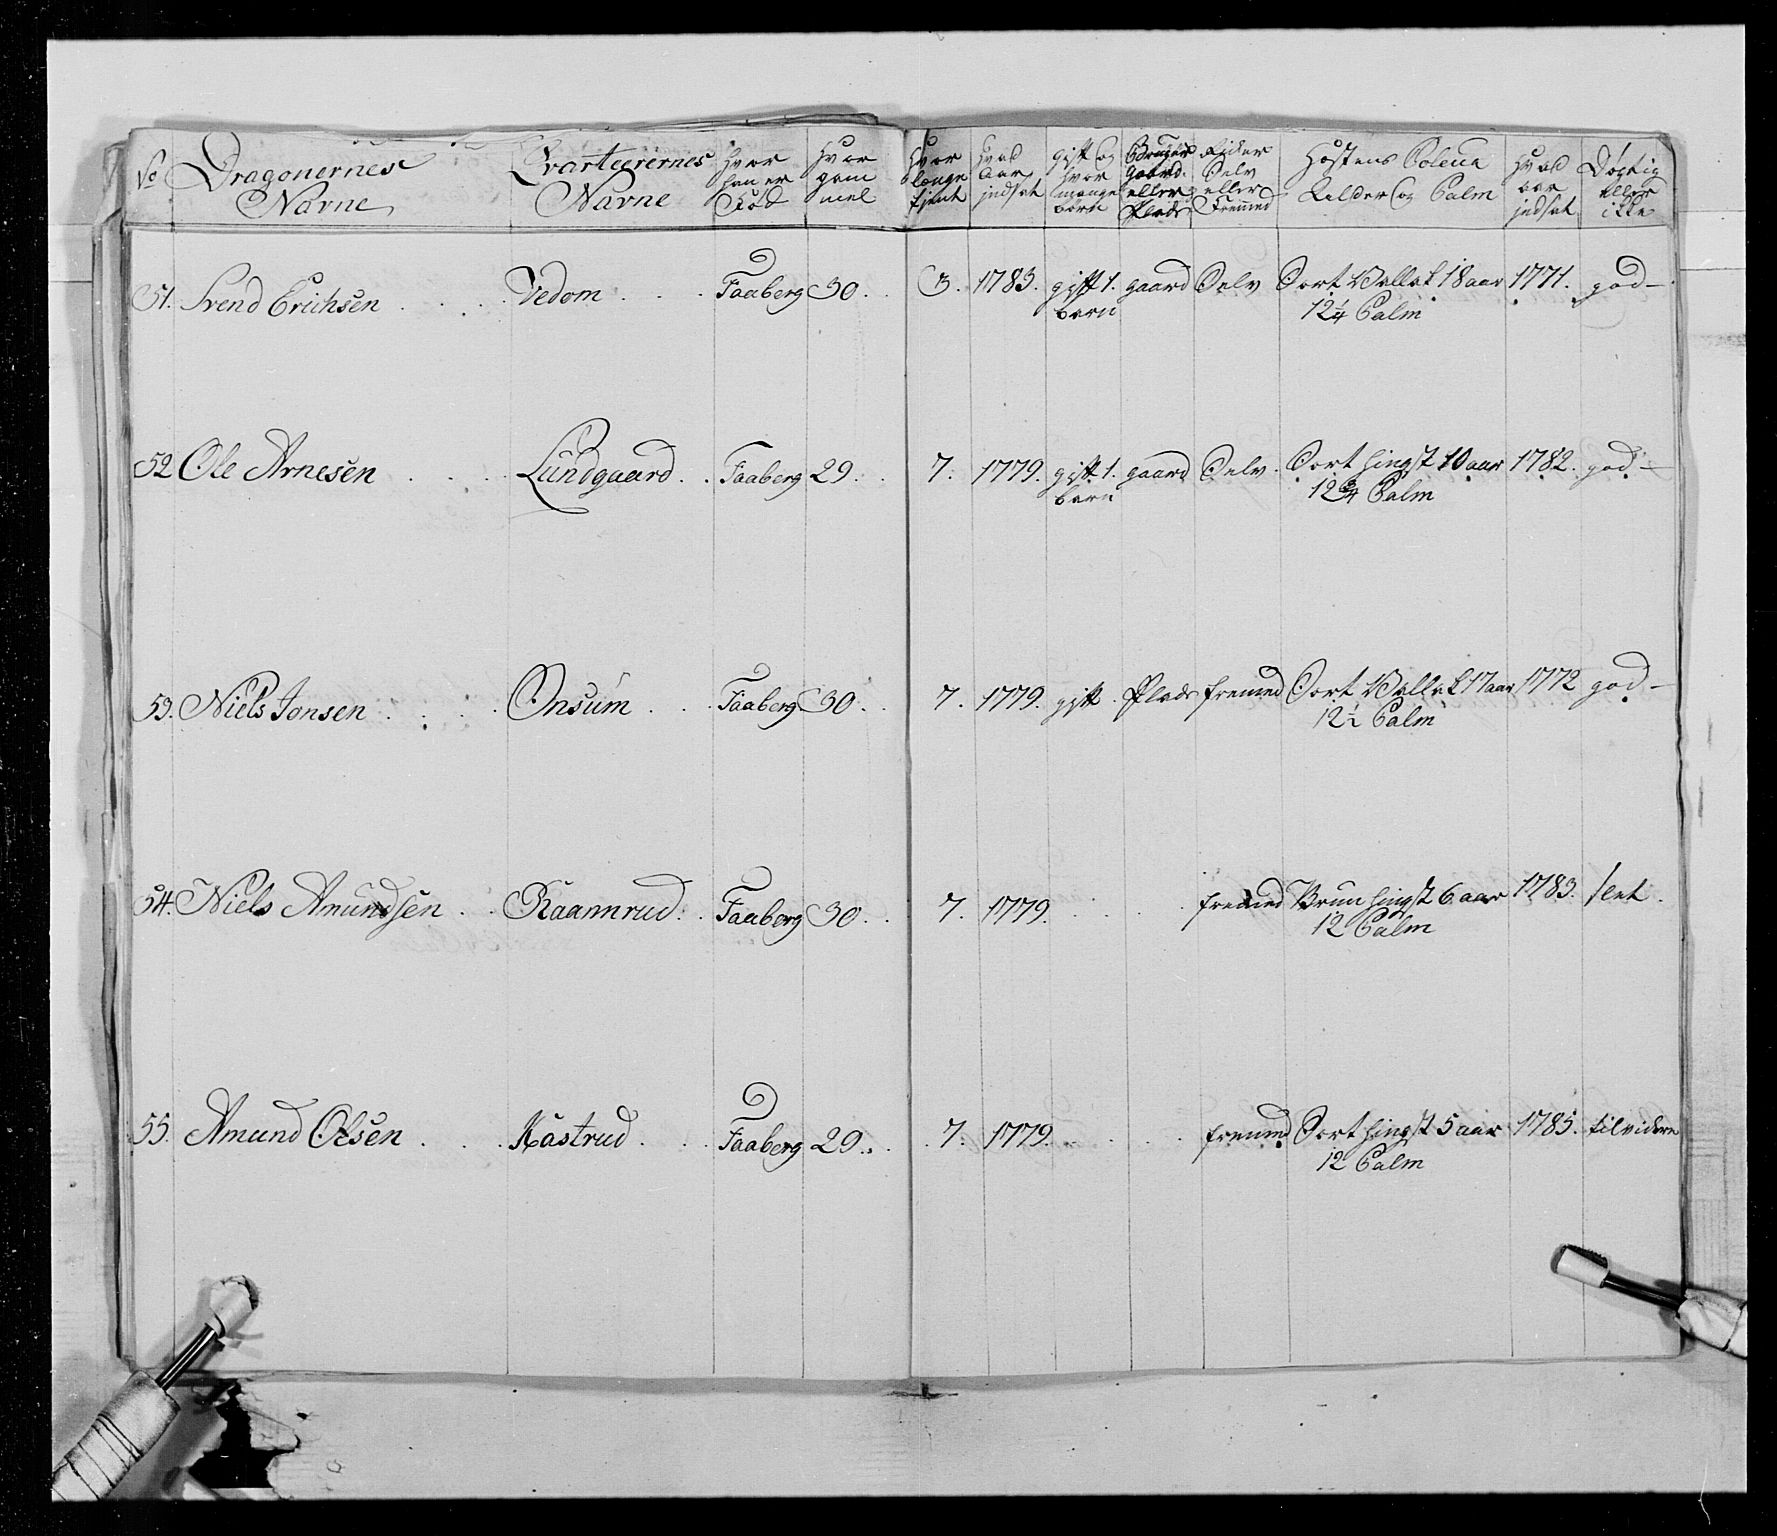 No Dragonernes Navne Qvarteerernes Navne Hvor han er Född Hvor gam mel Hvor længe tjent Hvad Aar indsat gift og hvor mange börn Bruger gaard eller Plads Riider Selv eller Fremmed Hæstens Coleur Alder og Palm Hvad aar indsat Dygtig eller ikke
51. Svend Erichsen Vedom Faaberg 30. 3. 1783. gift 1. gaard Selv Sort Vallak 18 aar 1771. god
barn 12 1/4 Palm
52 Ole Arnesen Lundgaard Faaberg 29. 7. 1779. gift 1. gaard Selv Sort hingst 10 aar 1782. god
barn 12 3/4 Palm
53. Niels Jonsen Onsum Faaberg 30. 7. 1779. gift Plads fremed Sort Vallak 17 aar 1772 god
12 1/2 Palm
54. Niels Amundsen Raamrud Faaberg 30. 7. 1779. fremed Brun hingst 6 aar 1783. slet
12 Palm
55. Amund Olsen Kastrud Faaberg 29. 7. 1779. fremed Sort hingst 5 aar 1785. tilvidere
12 Palm